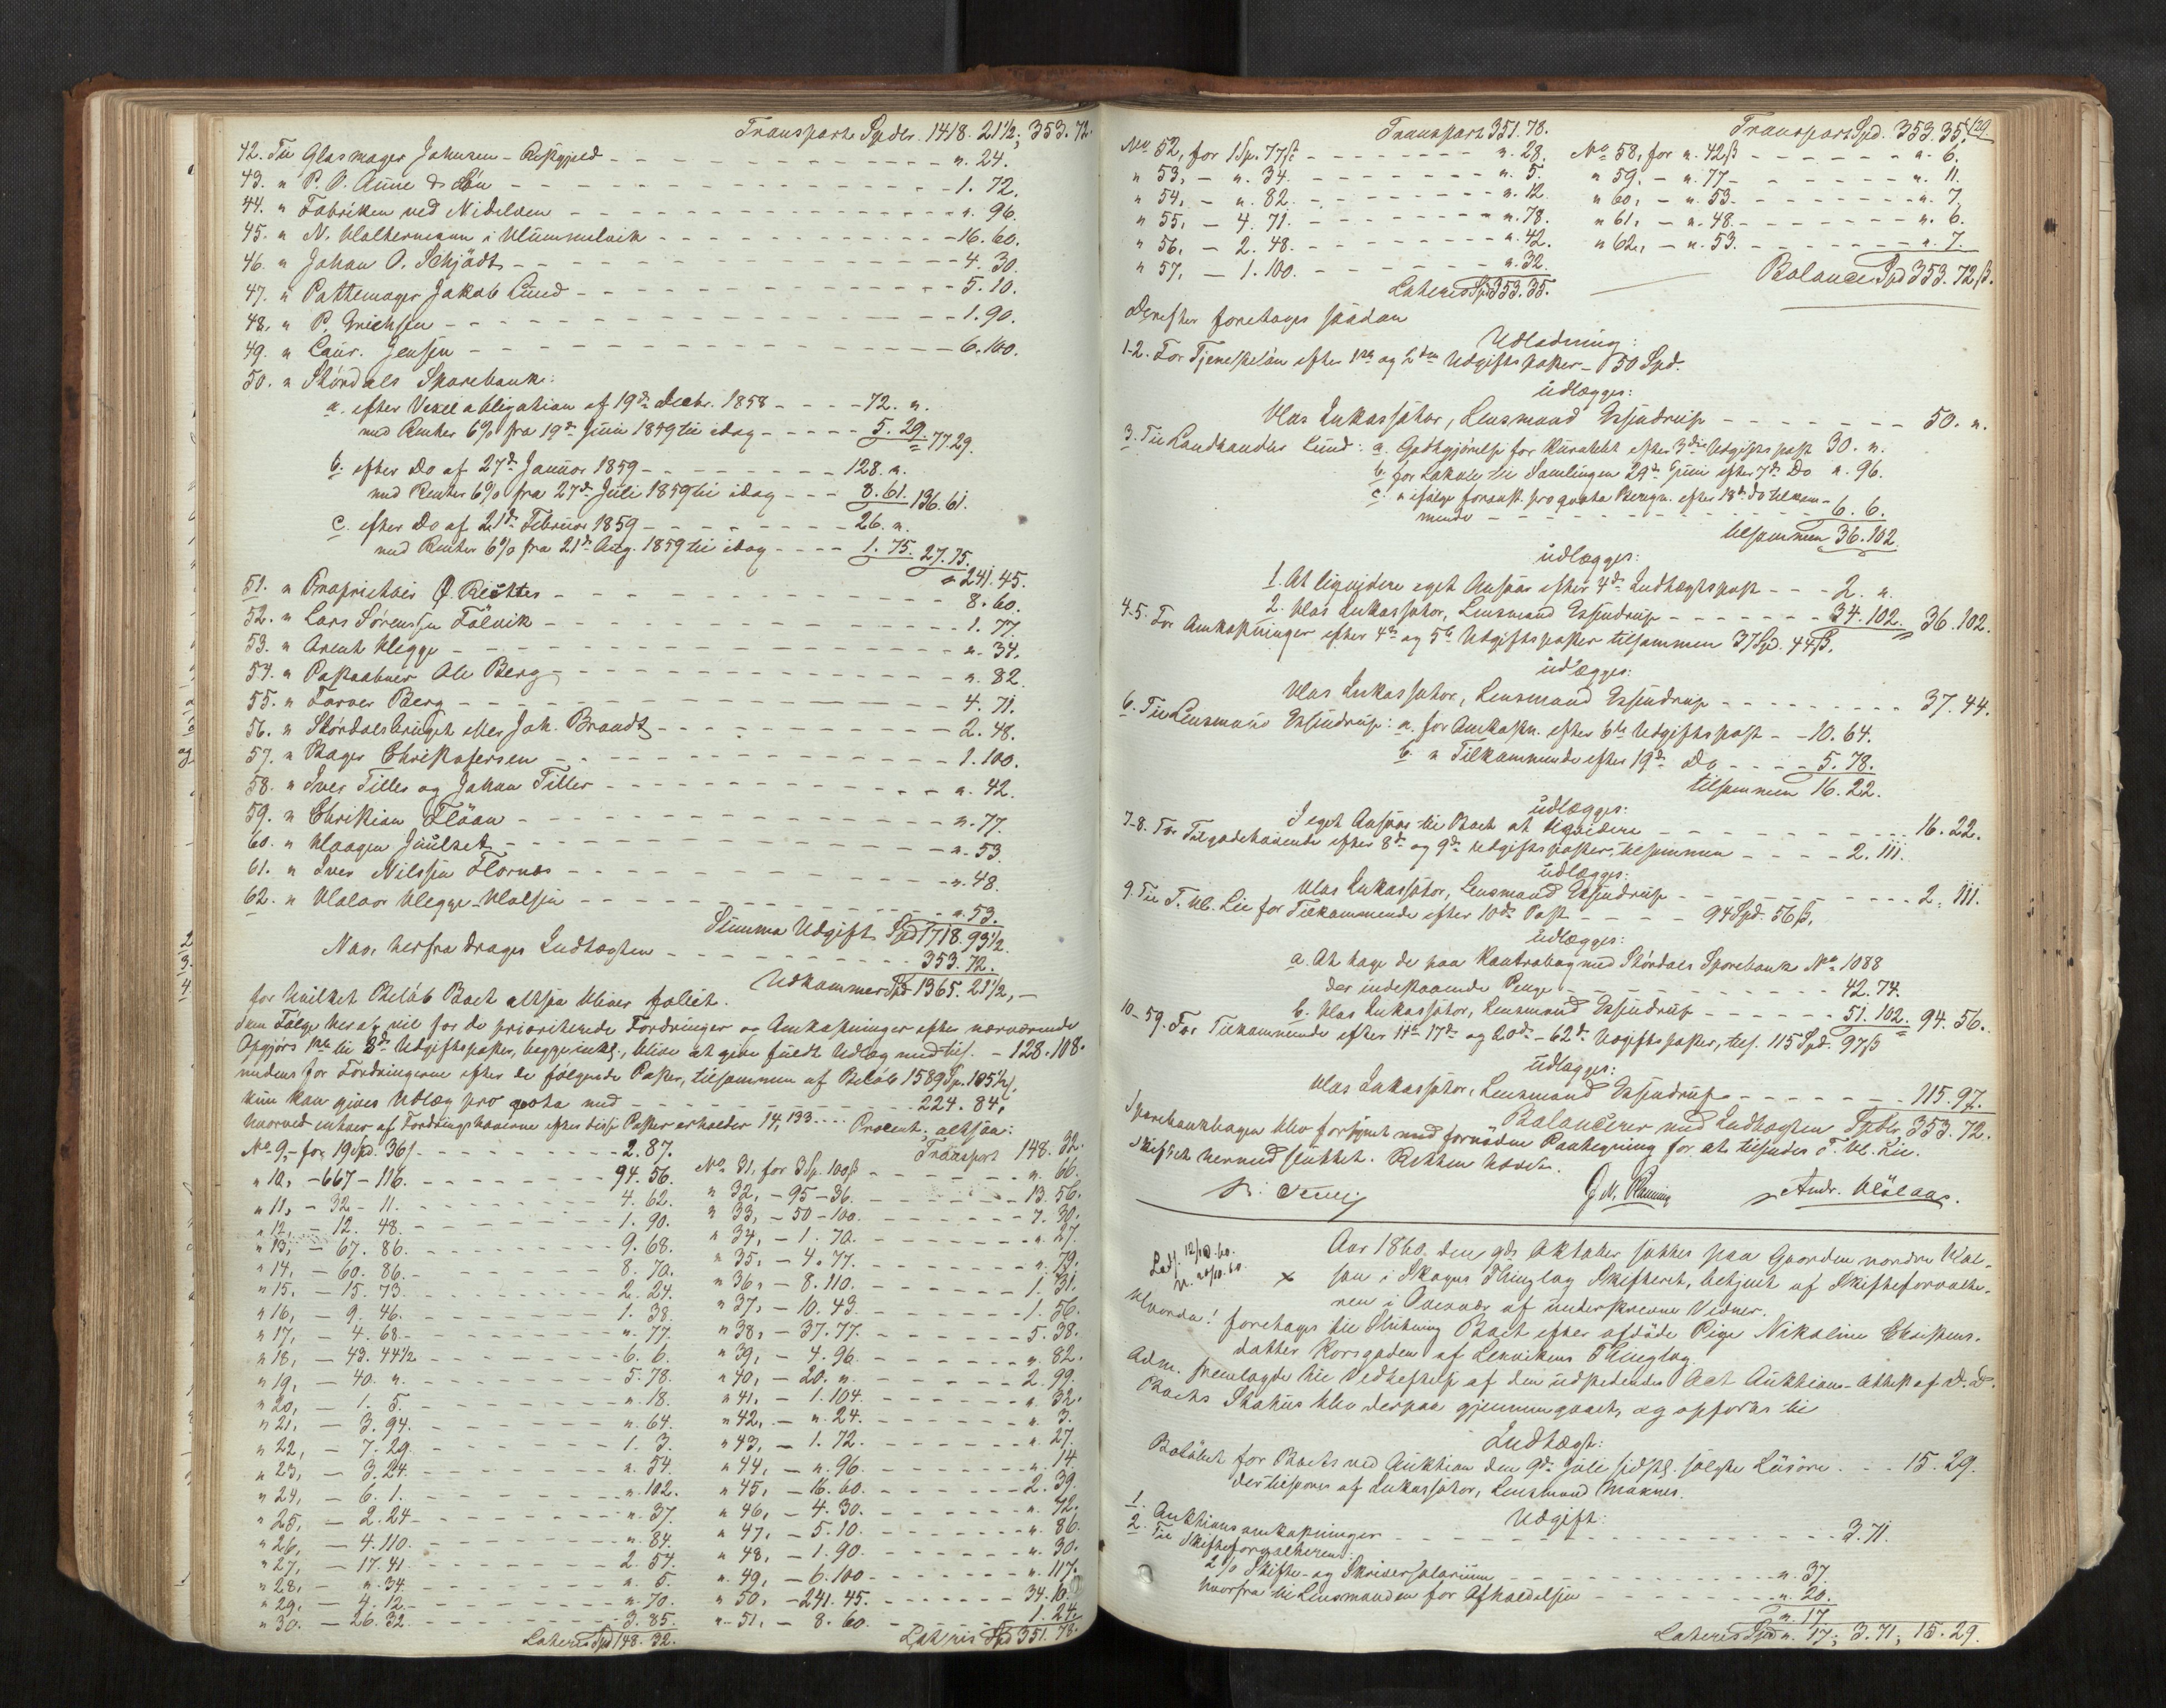 Transport Spdlr. 1418. 21½; 353. 72.
42. Til Glasmager Johnsen - Restgjeld - - - " 24.
43. " P. O. Aune ds Lön - - - 1. 72.
44. " Fabriken ved Nidelven - - - " 96.
45. " N. Walthermann i Hummelvik - - - 16. 60.
46. " Johan O. Schjödt - - - 4. 30.
47. " Pottemager Jakob Lund - - - 5. 10.
48. " P. Erichsen - - - 1. 90.
49. " Laur. Jensen - - - 6. 100.
50. " Stördals Sparebank:
a. efter Vexelobligation af 19de Decbr. 1858 - - - 72. "
med Renter 6% fra 19de Juni 1859 til idag - - - 5. 29. 77. 29.
b. efter Do af 27de Januar 1859 - - - 128. "
med Renter 6% fra 27de Juli 1859 til idag - - - 8. 61. 136. 61.
c. efter Do af 21de Februar 1859 - - - 26. "
med Renter 6% fra 21de Aug. 1859 til idag - - - 1. 75. 27. 75.
241. 45.
51. " Proprietair O. Richter - - - 8. 60.
52. " Lars Sörenssen Fölvik - - - 1. 77.
53. " Arent Hegge - - - " 34.
54. " Postaabner Ole Berg - - - " 82.
55. " Farver Berg - - - 4. 71.
56. " Stördalsbruget eller Joh. Brandt - - - 2. 48.
57. " Bager Christofersen - - - 1. 100.
58. " Iver Tiller og Johan Tiller - - - " 42.
59. " Christian Flöan - - - " 77.
60. " Haagen Juulset - - - " 53.
61. " Iver Nilssen Flornes - - - " 48.
62. " Halvor Hegge-Halsen - - - " 53.
Summa Udgift Spd 1718. 93½.
Naar herfra drages Indtægten - - - 353. 72.
Udkommer Spd 1365. 21½, -
for hvilket Belöb Boet altsaa bliver fallit.
Som Fölge heraf vil for de prioriterede Fordringer og Omkostninger efter nærværende
Opgjörs 1ste til 8de Udgiftsposter, begge inkl., blive at give fuldt Udlæg med tils. - 128. 108.
medens for Fordringerne efter de fölgende Poster, tilsammen af Belöb 1589 Sp. 105½ s.
kun kan gives Udlæg pro qvota med - - - 224. 84,
hvorved enhver af Fordringshaverne efter disse Poster erholder 14,133 .... Procent, altsaa:
No 9, for 19 Spd. 36 s. - - - 2. 87.
" 10, - 667 - 116. - - - 94. 56.
" 11, - 32 - 11. - - - 4. 62.
" 12, - 12. 48. - - - 1. 90.
" 13, - 67. 86. - - - 9. 68.
" 14, - 60. 86. - - - 8. 70.
" 15, - 15. 73. - - - 2. 24.
" 16, - 9. 46. - - - 1. 38.
" 17, - 4. 68. - - - " 77.
" 18, - 43. 44½ - - - 6. 6.
" 19, - 40. " - - - 5. 78.
" 20, - 1. 5. - - - " 18.
" 21, - 3. 94. - - - " 64.
" 22, - 7. 29. - - - 1. 3.
" 23, - 3. 24. - - - " 54.
" 24, - 6. 1. - - - " 102.
" 25, - 2. 24. - - - " 37.
" 26, - 4. 110. - - - " 84.
" 27, - 17. 41. - - - 2. 54.
" 28, - " 34. - - - " 5.
" 29, - 4. 12. - - - " 70.
" 30. - 26. 32. - - - 3. 85.
Lateris Spd 148. 32.
Transport 148. 32.
No 31, for 3 Sp. 100 ß - - - " 66.
" 32, - 95 - 36. - - - 13. 56.
" 33, - 50 - 100. - - - 7. 30.
" 34, - 1. 70. - - - " 27.
" 35, - 4. 77. - - - " 79.
" 36, - 8. 110. - - - 1. 31.
" 37, - 10. 43. - - - 1. 56.
" 38, - 37. 77. - - - 5. 38.
" 39, - 4. 96. - - - " 82.
" 40, - 20. " - - - 2. 99.
" 41, - 1. 104. - - - " 32.
" 42, - " 24. - - - " 3.
" 43, - 1. 72. - - - " 27.
" 44, - " 96. - - - " 14.
" 45, - 16. 60. - - - 2. 39.
" 46, - 4. 30. - - - " 72.
" 47, - 5. 10. - - - " 86.
" 48, - 1. 90. - - - " 30.
" 49, - 6. 100 - - - " 117.
" 50, - 241. 45. - - - 34. 1
" 51, - 8. 60. - - - 1. 24.
Lateris Spd 351. 78.
129.
Transport 351. 78.
No 52, for 1 Sp. 77 ß - - - " 28.
" 53, - " 34. - - - " 5.
" 54, - " 82. - - - " 12.
" 55, - 4. 71. - - - " 78.
" 56, - 2. 48. - - - " 42.
" 57, - 1. 100. - - - " 32.
Lateris Spd 353. 35.
Transport Spd. 353. 35.
No 58, for " 42 ß - - - " 6.
" 59, - " 77 - - - " 11.
" 60, - " 53. - - - " 7.
" 61, - " 48. - - - " 6.
" 62, - " 53. - - - " 7.
Balance Spd 353. 72 ß.
Derefter foretages saadan
Udlodning:
1-2. For Tjenesteløn efter 1ste og 2den Udgiftsposter - 50 Spd.
udlægges:
Hos Inkassator, Lensmand Essendrup - - - 50. "
3. Til Landhandler Lund: a. Godtgjörelse for Kuratelet efter 3die Udgiftspost 30. "
b. for Lokale til Samlingen 29de Juni efter 7de Do " 96.
c. " ifölge foranst. pro quota Beregn. efter 18de Do tilkom-
mende - - - 6. 6.
tilsammen 36. 102.
udlægges:
1. At liqvidere eget Ansvar efter 4de Indtægtspost - - - 2. "
2. Hos Inkassator, Lensmand Essendrup - - - 34. 102. 36. 102.
4-5. For Omkostninger efter 4de og 5te Udgiftsposter tilsammen 37 Spd. 44 ß.
udlægges:
Hos Inkassator, Lensmand Essendrup - - - 37. 44.
6. Til Lensmand Essendrup: a. for Omkostn. efter 6te Udgiftspost - - 10. 64.
b. " Tilkommende efter 19de Do - - - 5. 78.
tilsammen 16. 22.
udlægges:
I eget Ansvar til Boet at liqvidere - - - 16. 22.
7-8. For Tilgodehavende efter 8de og 9de Udgiftsposter, tilsammen - - - 2. 111.
udlægges:
Hos Inkassator, Lensmand Essendrup - - - 2. 111.
9. Til T. H. Lie for Tilkommende efter 10de Post - - - 94 Spd. 56 ß,
udlægges:
a. At tage de paa Kontrabog med Stördals Sparebank No 1088
der indestaaende Penge - - - 42. 74.
b. Hos Inkassator, Lensmand Essendrup - - - 51. 102. 94. 56.
10-59. For Tilkommende efter 11te-17de og 20de-62de Udgiftsposter, tils. 115 Spd. 97 ß
udlægges:
Hos Inkassator, Lensmand Essendrup - - - 115. 97.
Balancerer med Indtægten Spdlr. 353. 72.
Sparebankbogen blev forsynet med fornöden Paategning for at tilsendes T. H. Lie.
Skiftet hermed sluttet. Retten hævet.
Andr. Hölaas.
Lad. 12/10. 60.
Aar 1860 den 9de Oktober sattes paa Gaarden nordre Hal-
sen i Skogns Thinglag Skifteret, betjent af Skifteforvalte-
ren i Overvær af underskrevne Vidner.
Hvorda! foretages til Slutning Boet efter afdöde Pige Nikoline Christens-
datter Korsgaden af Leksvikens Thinglag.
Adm. fremlagde til Vedheftelse af den udstedendes Act Auktions-Attest af D. D.
Boets Status blev derpaa gjennemgaaet, og opfortes til
Indtægt:
Belöbet for Boets ved Auktion den 9de Juli sidstl. solgte Lösöre - - - 15. 29.
der tilsvares af Inkassator, Lensmand Moknes.
Udgift:
1. Auktionsomkostninger - - - 3. 71.
2. Til Skifteforvalteren:
2% Skifte- og Skriversalarium - - - " 37.
hvorfra til Lensmanden for Afholdelsen - - - " 20.
" 17
Lateris Spd " 17; 3. 71; 15. 29.